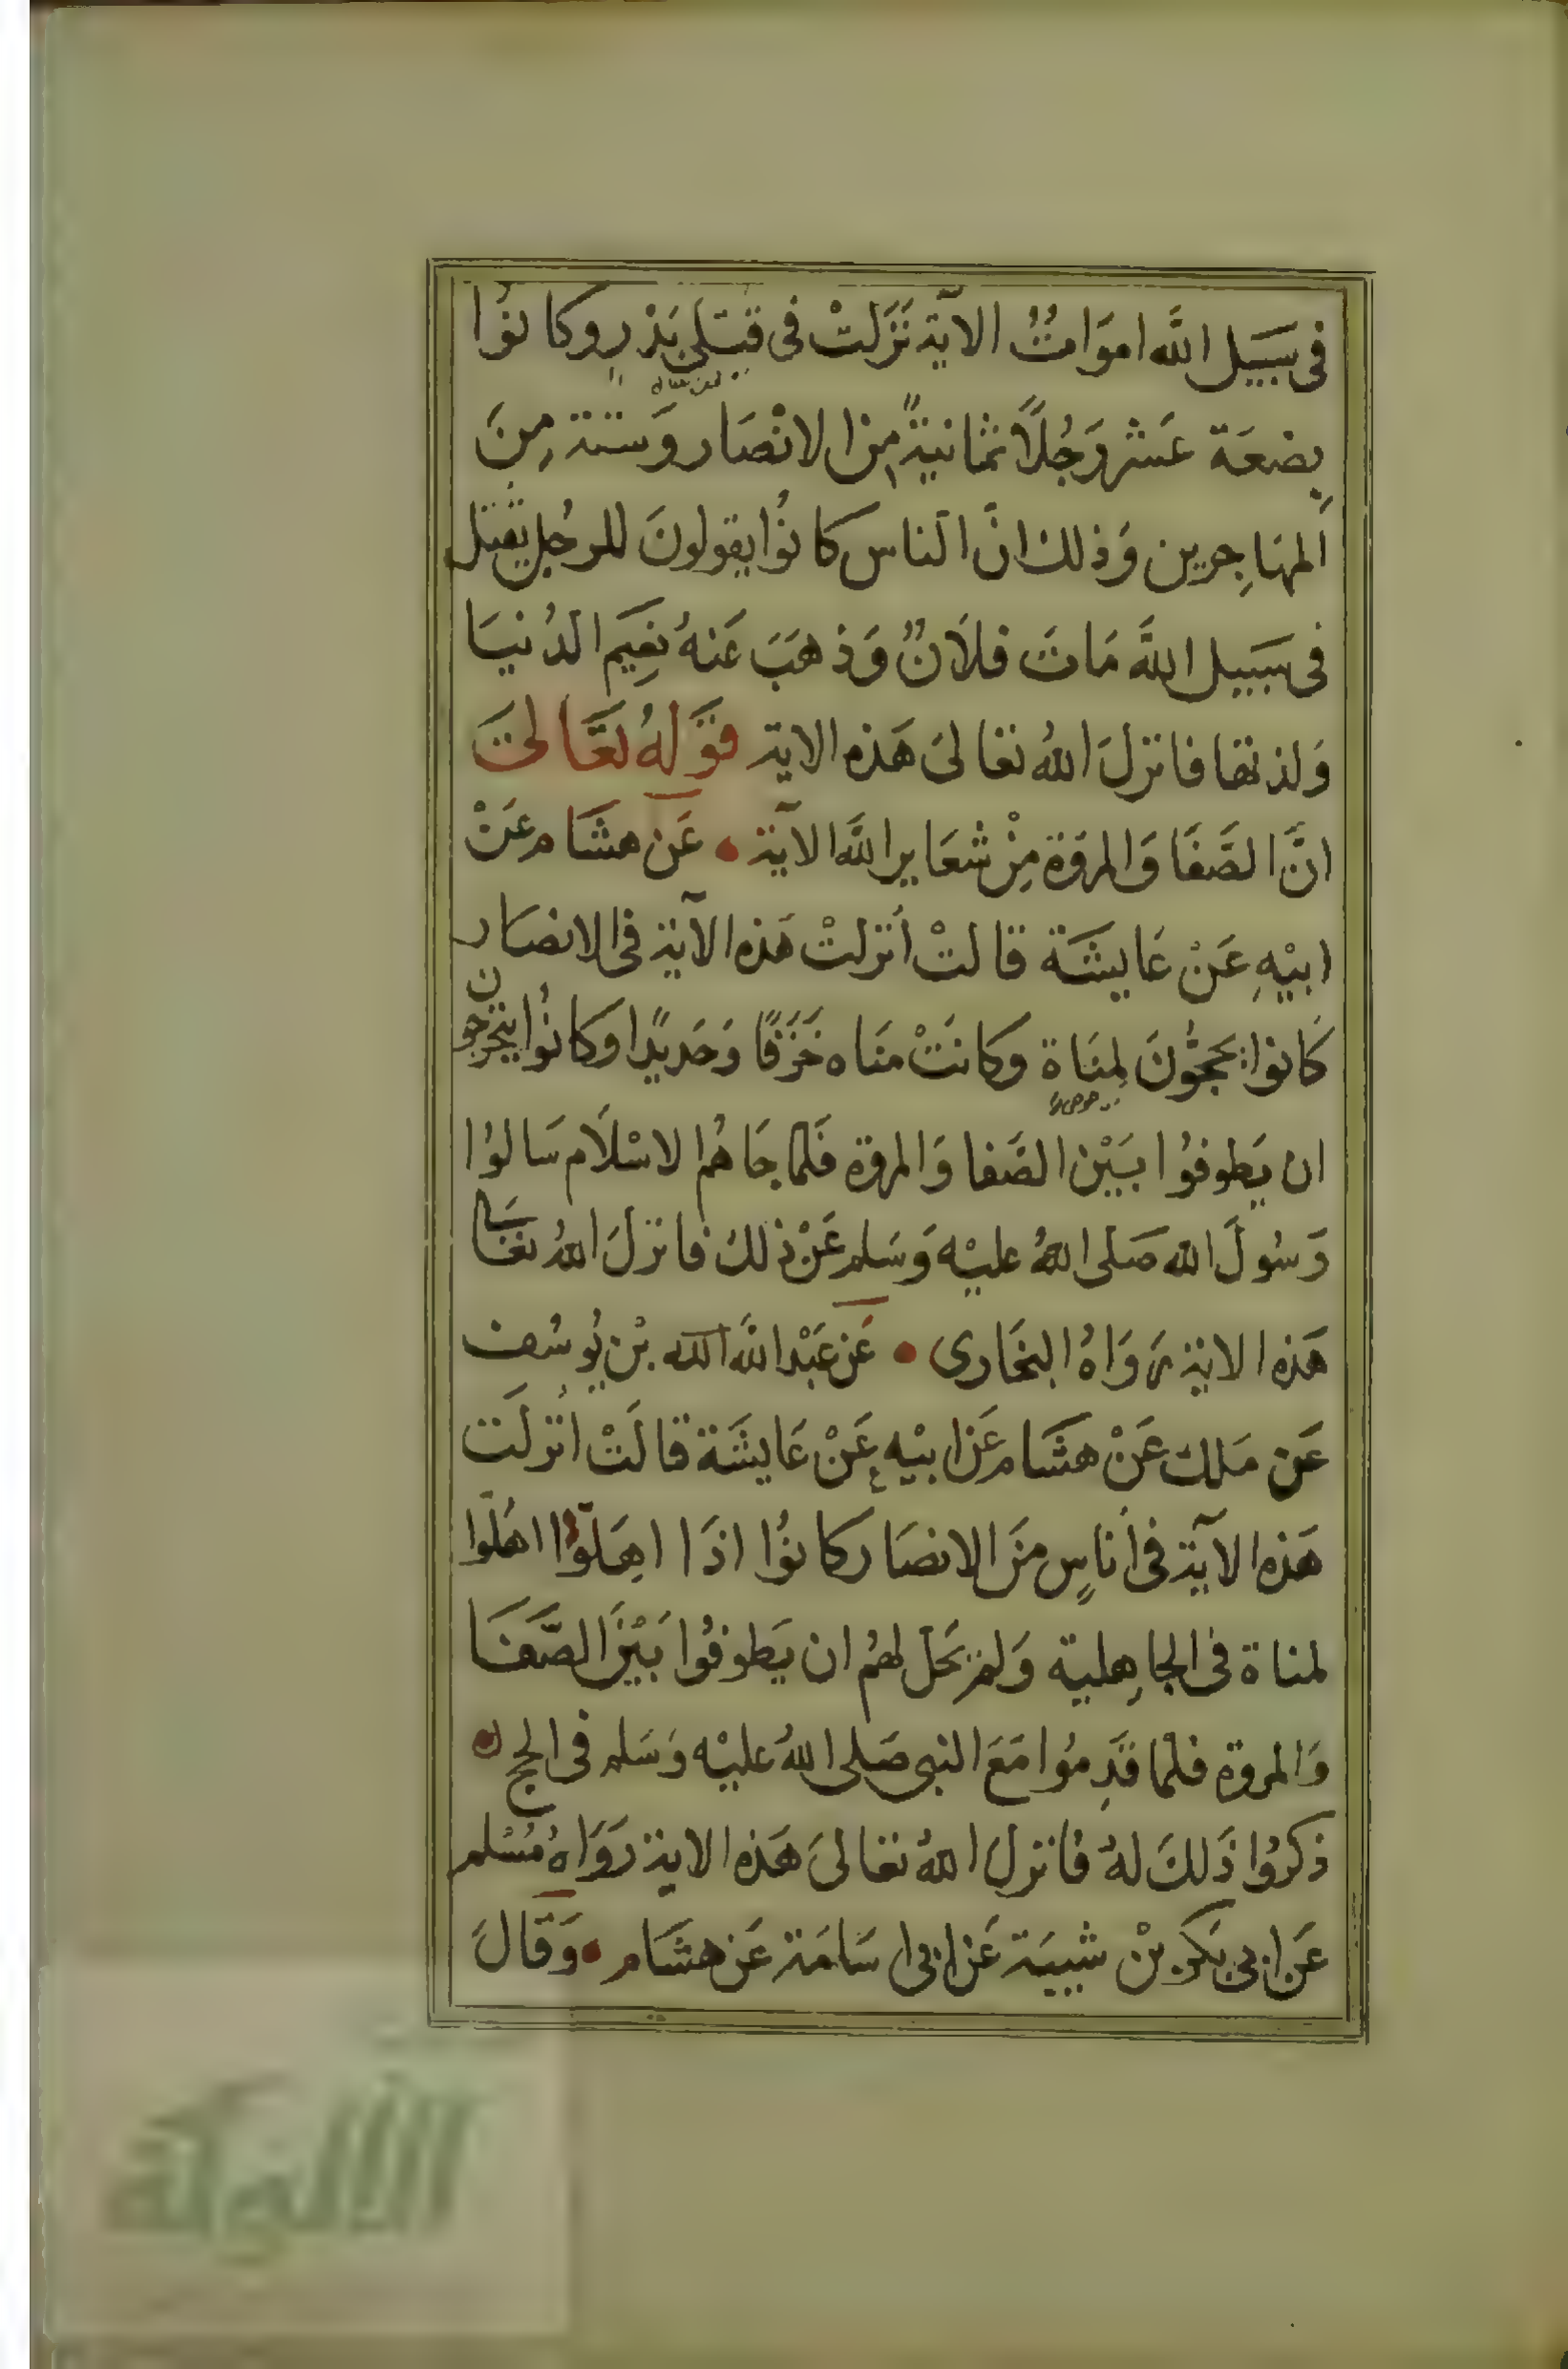 فى سَبيل اللَّه اموَاتُ الآيَة نَزَلتْ فى قتلى بَدْرٍ وكانوُا
بِضعَة عَشر رَجُلاً ثمانيةً من الانْصَار وَستة مِنَ
المهَاجِرين وَذلك انَّ الناس كانوُا يقولونَ للرجُل يقتل
فى سَبيل اللَّه مَاتَ فلاَنٌ وَذهَبَ عَنهُ نعِيَم الدُنيَا
وَلذتها فانزلَ اللهُ تعالىَ هَذه الاية قوَلهُ تعَالىَ
انَّ الصَّفَا وَالمروَة مِنْ شعَاير اللَّه الآية • عَن هشَام عَنْ
ابيْهِ عَنْ عَايشَة قالتْ أنزلتْ هَذه الآية فى الانصَار
كَانوا يحجُّونَ لِمنَاة وكانَتْ مَنَاه خَزَفًا وَحَديدًا وكانوُا يتحرجون
ان يَطوفوُا بَيْن الصَّفا وَالمروة فَلما جَاهُم الاسْلَام سَالوُا
رَسُولَ الله صَلى اللهُ عليْه وَسَلم عَنْ ذلكَ فانزلَ اللهُ تعَالى
هَذه الاية رَوَاهُ البخَارى • عَن عَبْد اللَّه الله بْن يُوسُف
عَن مَلك عَنْ هشَام عَن ابيْه عَنْ عَايشَة قالَتْ أنزلَت
هَذه الآية فى أنَاسٍ مَن الانصَار كانوُا اذَا اهِلَوُّا اهَلّوا
لمناة فى الجاهِلية وَلم يَحل لهُم ان يَطوفوُا بَيْنَ الصَّفَا
وَالمروة فلما قَدِموُا مَعَ النبى صَلى اللهُ عليْه وَسَلم فى الحج
ذكروُا ذَلكَ لهُ فانزل اللهُ تعالىَ هَذه الاية رَوَاهُ مُسْلم
عَن ابى بَكر بْن شيبَة عَن ابى اسَامَة عَن هشَام • وَقَالَ